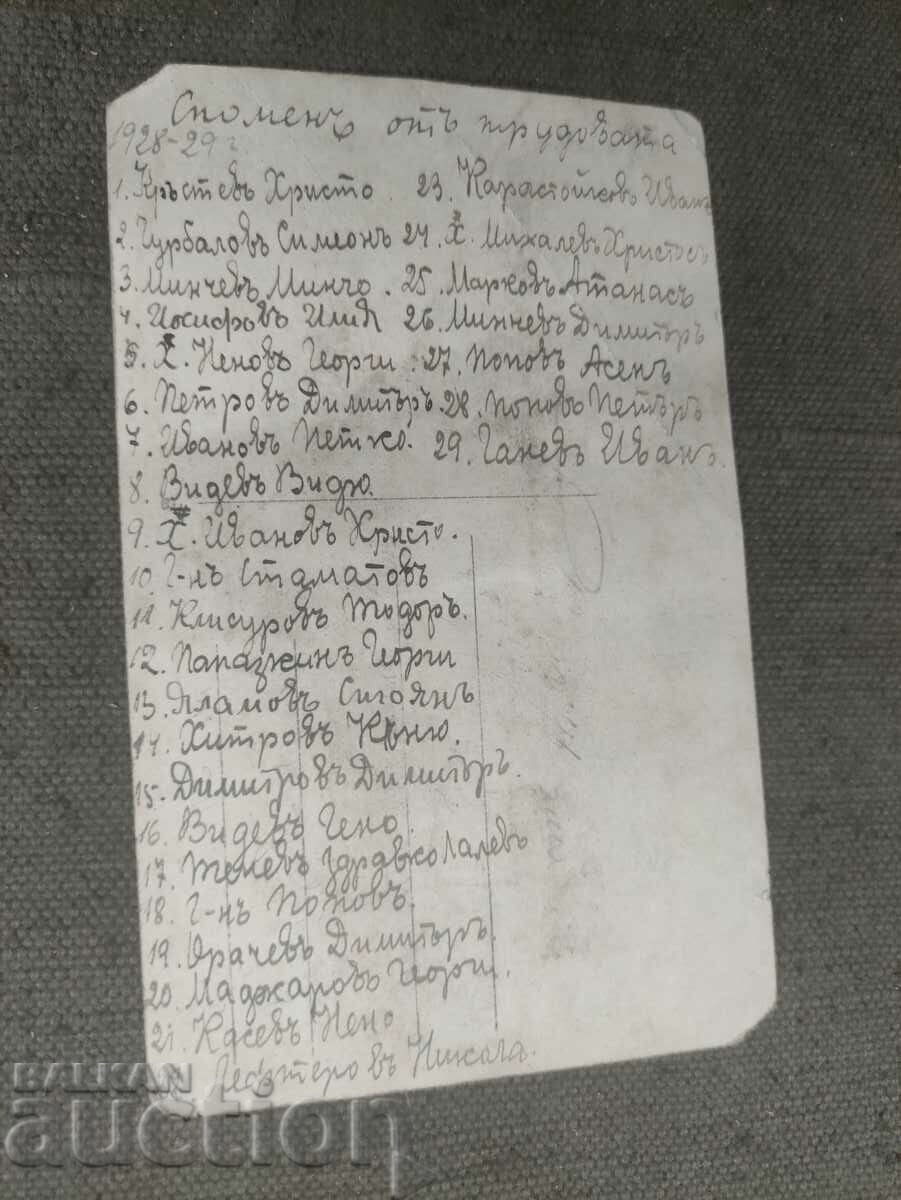 Споменъ отъ трудовата
1928-29 г.
1. Кръстевъ Христо
2. Гурбаловъ Симеонъ
3. Минчевъ Минчо.
4. Иосифовъ Илия
5. Х. Неновъ Георги
6. Петровъ Димитъръ.
7. Ивановъ Петко.
8. Видевъ Видю
9. Х. Ивановъ Христо.
10. Г-нъ Стаматовъ
11. Клисуровъ Тодоръ.
12. Папазкинъ Георги
13. Яламовъ Стоянъ
14. Хитровъ Кѫню.
15. Димитровъ Димитъръ.
16. Видевъ Гено.
17. Желевъ Здравко Лалевъ
18. Г-нъ Поповъ.
19. Орачевъ Димитъръ.
20. Маджаровъ Георги.
21. Касевъ Нено
Никола.
23. Карастойковъ Иванъ
24. Х. Михалевъ Христосъ
25. Марковъ Атанасъ
26. Минчевъ Димитъръ
27. Поповъ Асенъ
28. Поповъ Петъръ
29. Ганевъ Иванъ.
BALKAN
auction